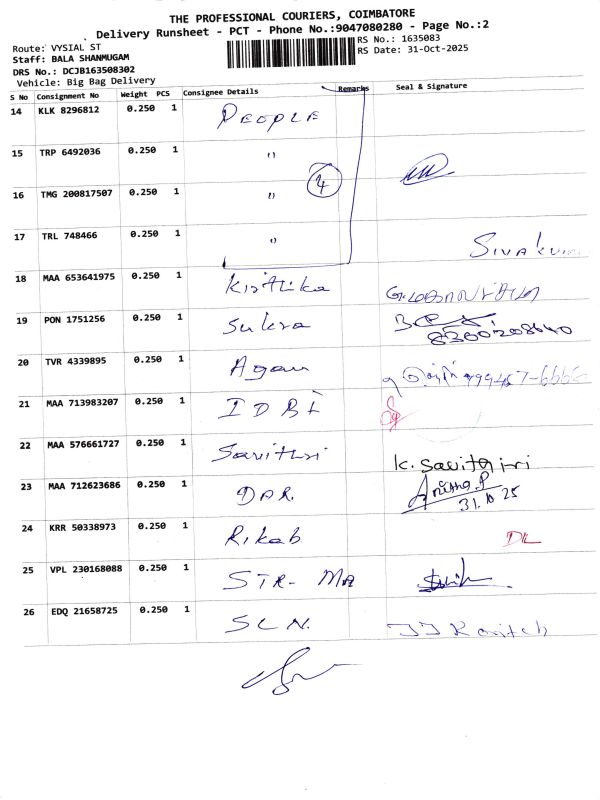 THE PROFESSIONAL COURIERS, COIMBATORE
Delivery Runsheet - PCT - Phone No.:9047080280 - Page No.:2
Route: VYSIAL ST
RS No.: 1635083
Staff: BALA SHANMUGAM
RS Date: 31-Oct-2025
DRS No.: DCJB163508302
Vehicle: Big Bag Delivery
S No Consignment No Weight PCS Consignee Details Remarks Seal & Signature
14 KLK 8296812 0.250 1 PEOPLE
15 TRP 6492036 0.250 1 "
4
16 TMG 200817507 0.250 1 "
17 TRL 748466 0.250 1 "
18 MAA 653641975 0.250 1 Kirthika
19 PON 1751256 0.250 1 Sukra
8300208640
20 TVR 4339895 0.250 1 Agam
21 MAA 713983207 0.250 1 IDBI
22 MAA 576661727 0.250 1 Savithri K. Savithiri
23 MAA 712623686 0.250 1 DAR.
31.10.25
24 KRR 50338973 0.250 1 Rikab DL
25 VPL 230168088 0.250 1 STR- MA
26 EDQ 21658725 0.250 1 SLN.